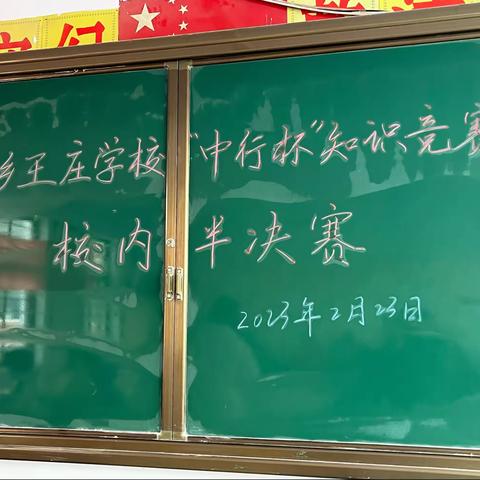 乡王庄学校“中行杯”知识竞赛
校内半决赛
2023年2月23日